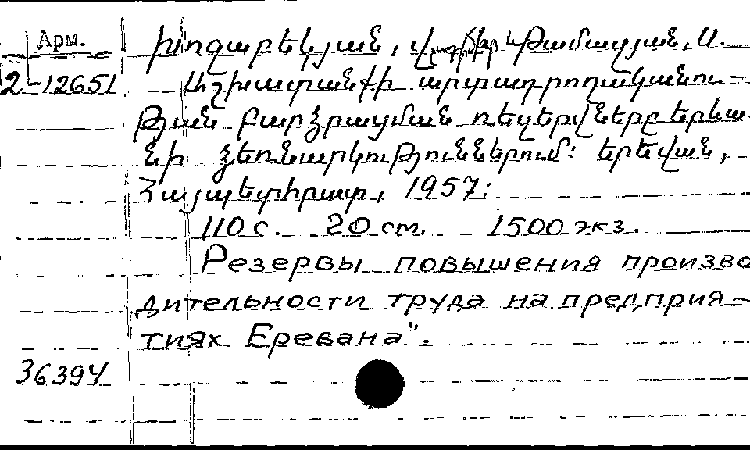 Арм.
2-12651
Խոջաբեկյան, Վլադիմիր և Թամազյան, Ա.
Աշխատանքի արտադրողականու-
թյան բարձրացման ռեզերվները Երևա-
նի ձեռնարկություններում: Երևան,
Հայպետհրատ, 1957:
110 с. 20 см. 1500 экз.
Резервы повышения произво
дительности труда на предприя-
тиях Еревана".
36394